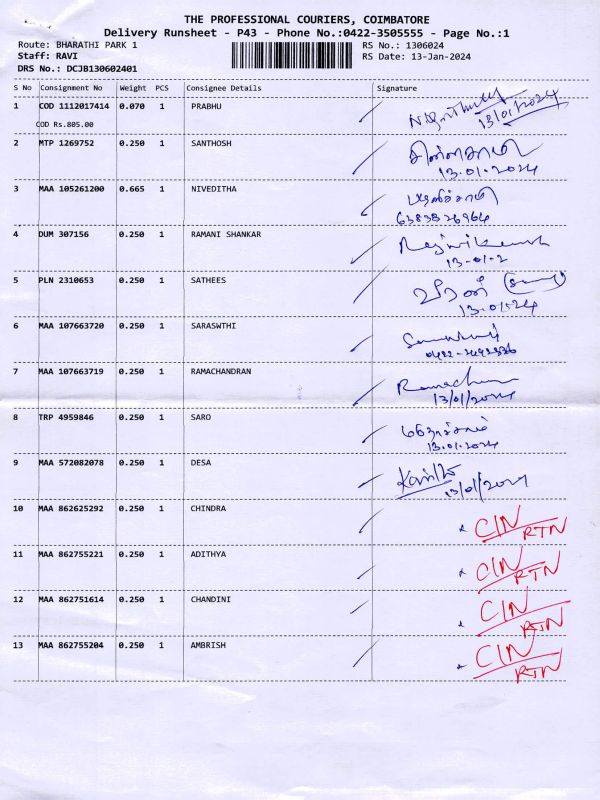 THE PROFESSIONAL COURIERS, COIMBATORE
Delivery Runsheet - P43 - Phone No.:0422-3505555 - Page No.:1
Route: BHARATHI PARK 1 RS No.: 1306024
Staff: RAVI RS Date: 13-Jan-2024
DRS No.: DCJB130602401
S No Consignment No Weight PCS Consignee Details Signature
1 COD 1112017414 0.070 1 PRABHU
13/01/2024
COD Rs.805.00
2 MTP 1269752 0.250 1 SANTHOSH
13.01.2024
3 MAA 105261200 0.665 1 NIVEDITHA
4 DUM 307156 0.250 1 RAMANI SHANKAR
13-01-2
5 PLN 2310653 0.250 1 SATHEES
13.01.24
6 MAA 107663720 0.250 1 SARASWTHI
7 MAA 107663719 0.250 1 RAMACHANDRAN
13/01/2024
8 TRP 4959846 0.250 1 SARO
13.01.2024
9 MAA 572082078 0.250 1 DESA
13/01/2024
10 MAA 862625292 0.250 1 CHINDRA CIN
RTN
11 MAA 862755221 0.250 1 ADITHYA CIN
RTN
12 MAA 862751614 0.250 1 CHANDINI CIN
RTN
13 MAA 862755204 0.250 1 AMBRISH CIN
RTN